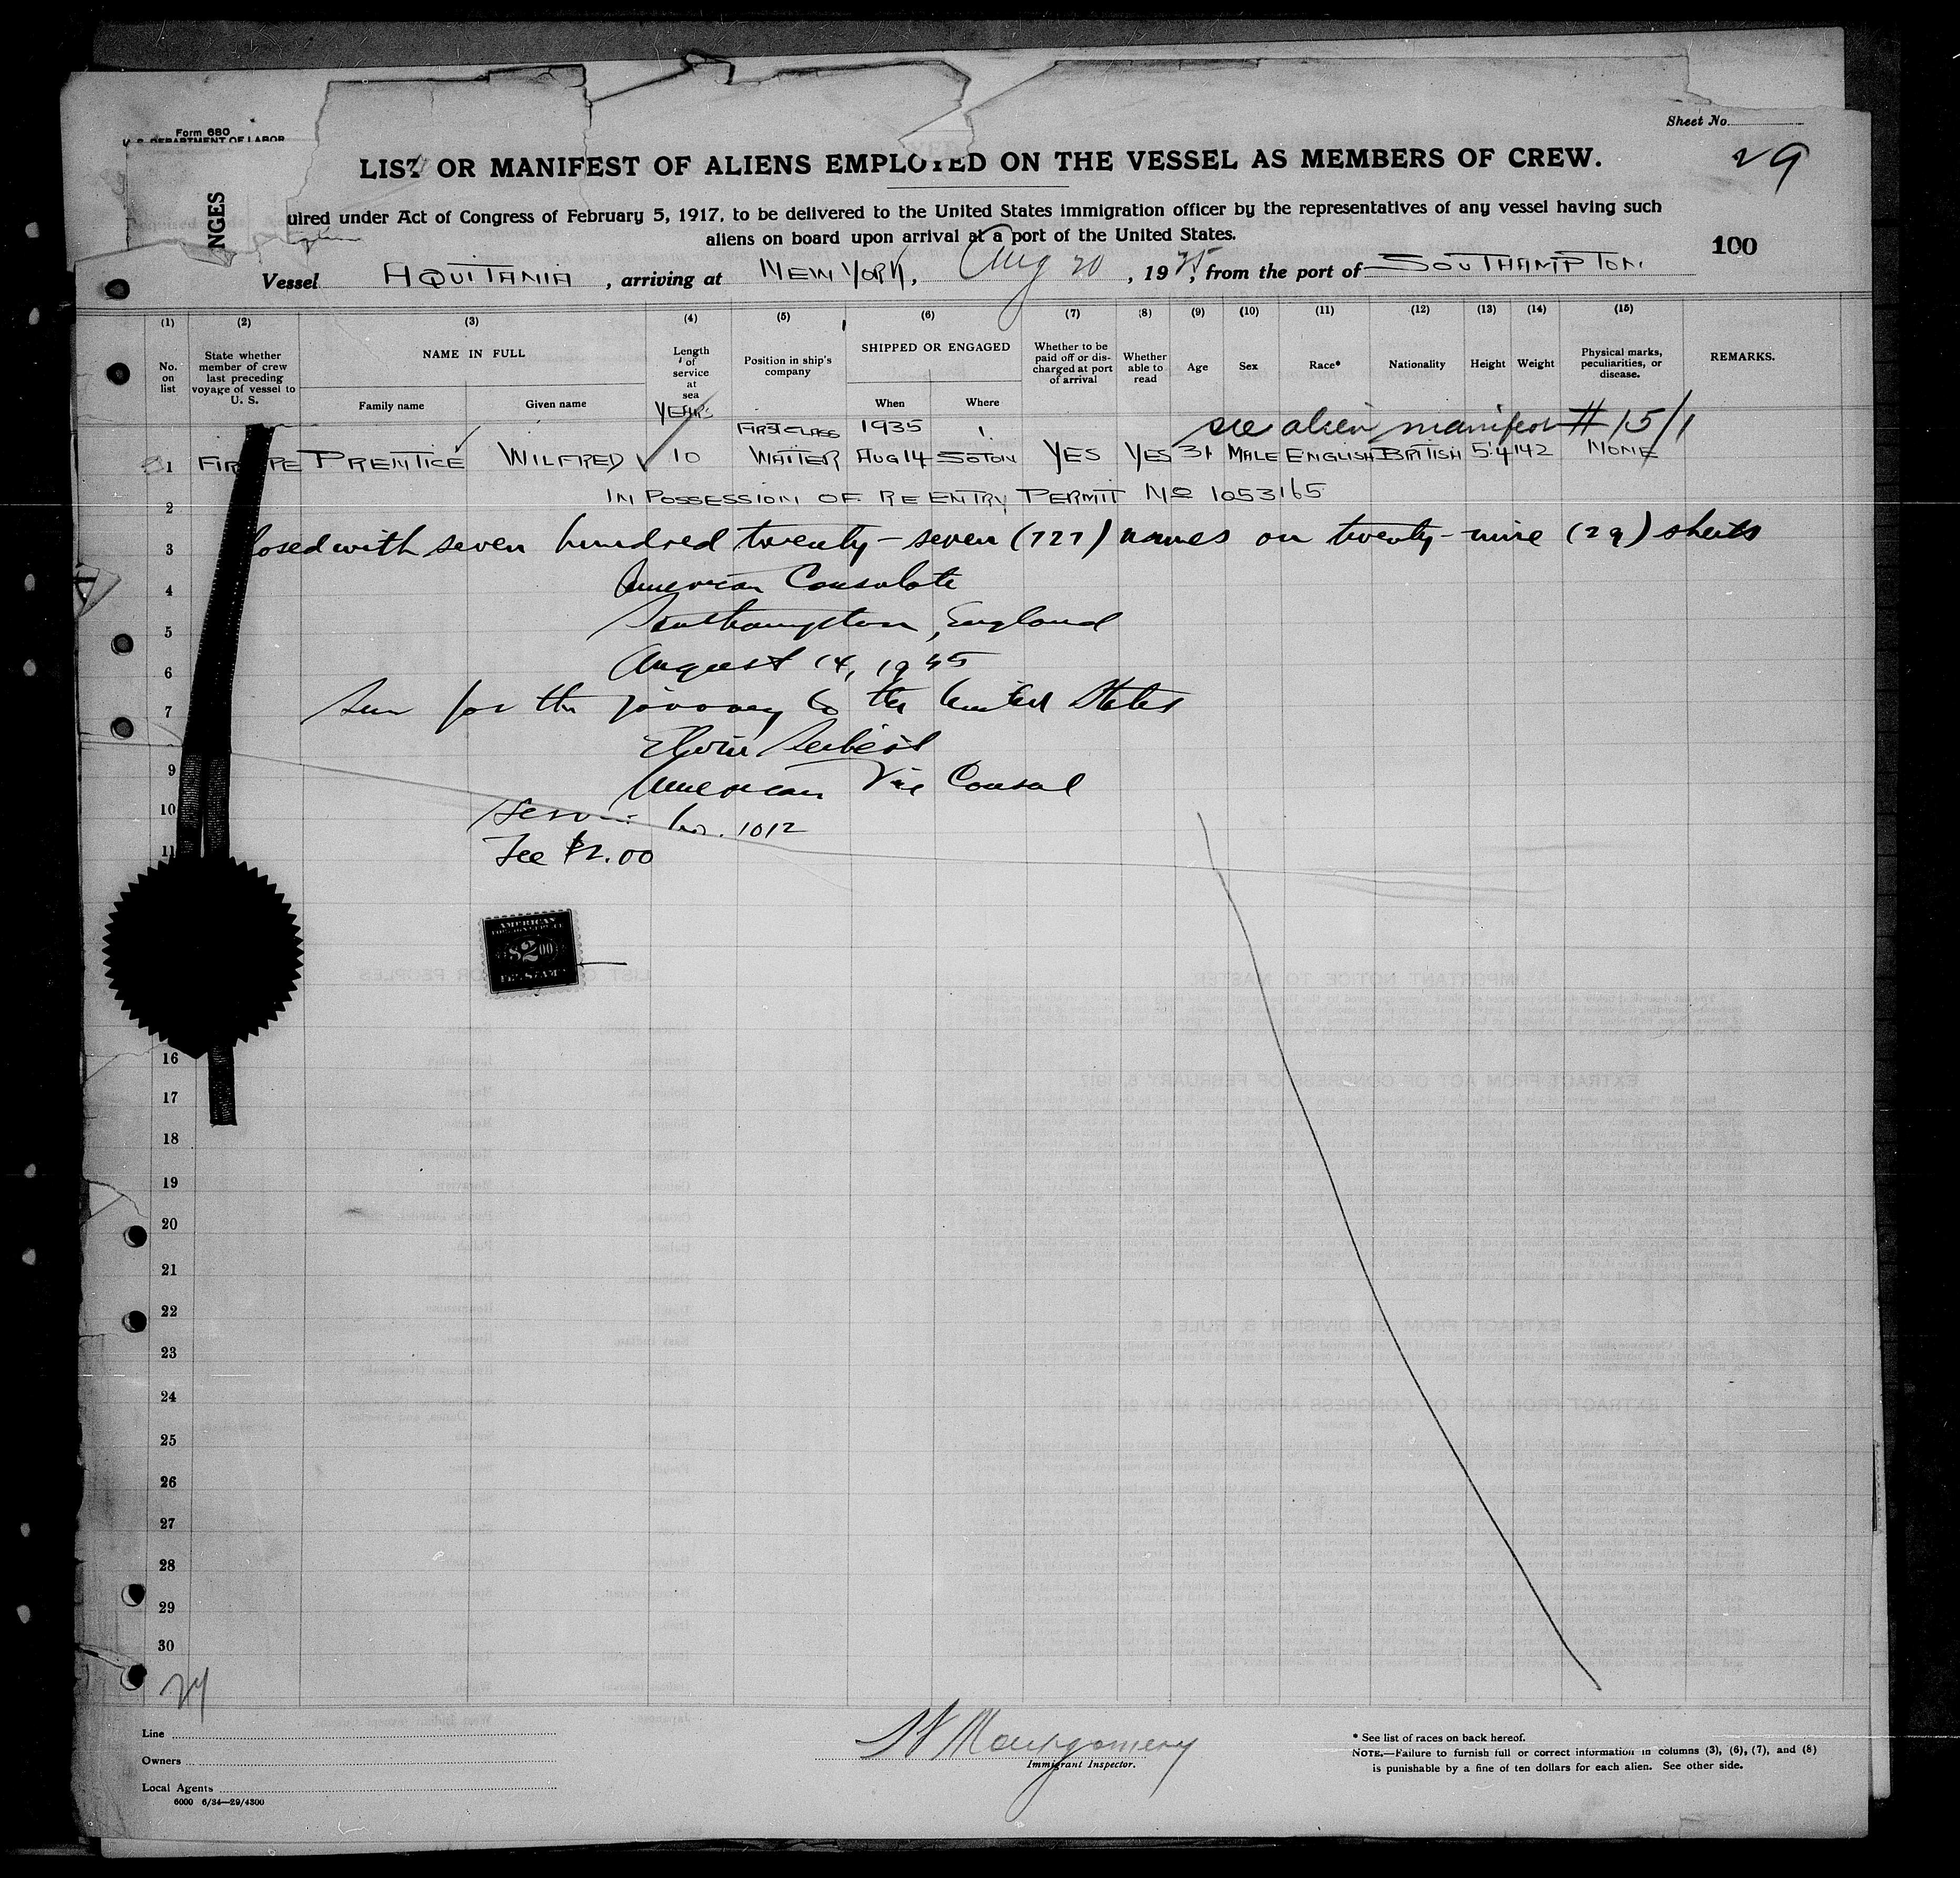 Form 680
U. S. DEPARTMENT OF LABOR
Sheet No.
29
NGES
LIST OR MANIFEST OF ALIENS EMPLOYED ON THE VESSEL AS MEMBERS OF CREW.
uired under Act of Congress of February 5, 1917, to be delivered to the United States immigration officer by the representatives of any vessel having such
aliens on board upon arrival at a port of the United States.
100
Vessel AQUITANIA, arriving at NEW YORK, Aug 20, 1935, from the port of SOUTHAMPTON
(1) (2) (3) (4) (5) (6) (7) (8) (9) (10) (11) (12) (13) (14) (15)
No. on list
State whether member of crew last preceding voyage of vessel to U. S.
NAME IN FULL
Family name
Given name
Length of service at sea
YEARS
Position in ship's company
SHIPPED OR ENGAGED
When
Where
Whether to be paid off or discharged at port of arrival
Whether able to read
Age
Sex
Race*
Nationality
Height
Weight
Physical marks, peculiarities, or disease.
REMARKS.
FIRST CLASS 1935 see alien manifest # 15/1
1 PRENTICE WILFRED 10 WAITER AUG 14 SOTON YES YES 31 MALE ENGLISH BRITISH 5.4 142 NONE
IN POSSESSION OF RE ENTRY PERMIT No 1053165
2
3 losed with seven hundred twenty-seven (727) names on twenty-nine (29) sheets
4 American Consulate
5 Southampton, England
6 August 14, 1935
7 Seen for the journey to the United States
American Vice Consul
9
10 Service No. 1012
11 Fee $2.00
AMERICAN
FOREIGN SERVICE
$2.00
16
17
18
19
20
21
22
23
24
25
26
27
28
29
30
Line
Owners
Local Agents
6000 6/34—29/4300
Montgomery
Immigrant Inspector.
* See list of races on back hereof.
NOTE.—Failure to furnish full or correct information in columns (3), (6), (7), and (8)
is punishable by a fine of ten dollars for each alien. See other side.